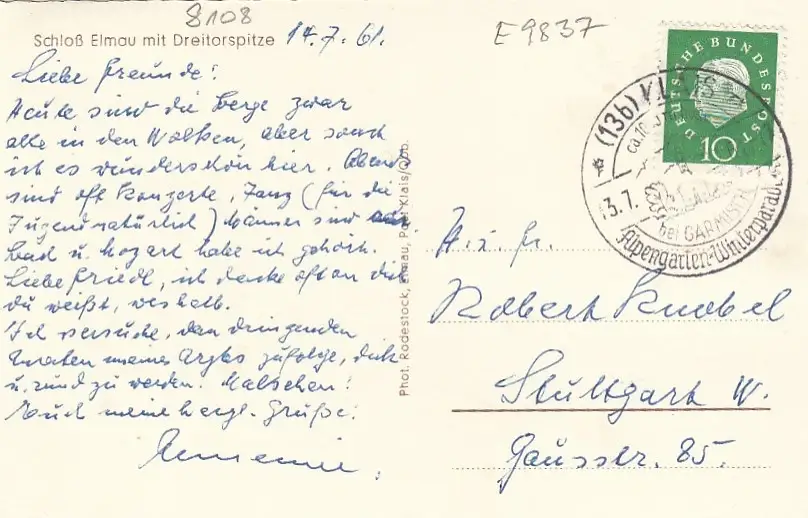 8108
E 9837
Schloß Elmau mit Dreitorspitze 14.7.61.
Liebe Freunde!
Heute sind die Berge zwar
alle in den Wolken, aber sonst
ist es wunderschön hier. Abends
sind oft Konzerte, Tanz (für die
Jugend natürlich)
Bach u. Mozart habe ich gehört.
Liebe Friedl, ich denke oft an dich
du weißt, weshalb.
Ich versuche, den dringenden
Raten meines Arztes zufolge, dick
u. rund zu werden. Mal sehen!
Euch meine herzl. Grüße!
Phot. Rodestock, Elmau, Post Klais/Obb.
DEUTSCHE BUNDESPOST
10
(13b) KLAIS
bei GARMISCH
Alpengarten-Winterparadies
Robert Knobel
Stuttgart W.
Gaussstr. 85.